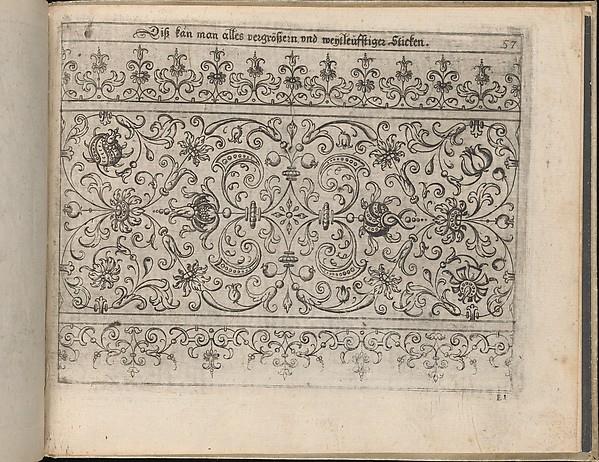 Diß kan man alles vergrößern vnd weytleufftiger Sticken.
57
E1